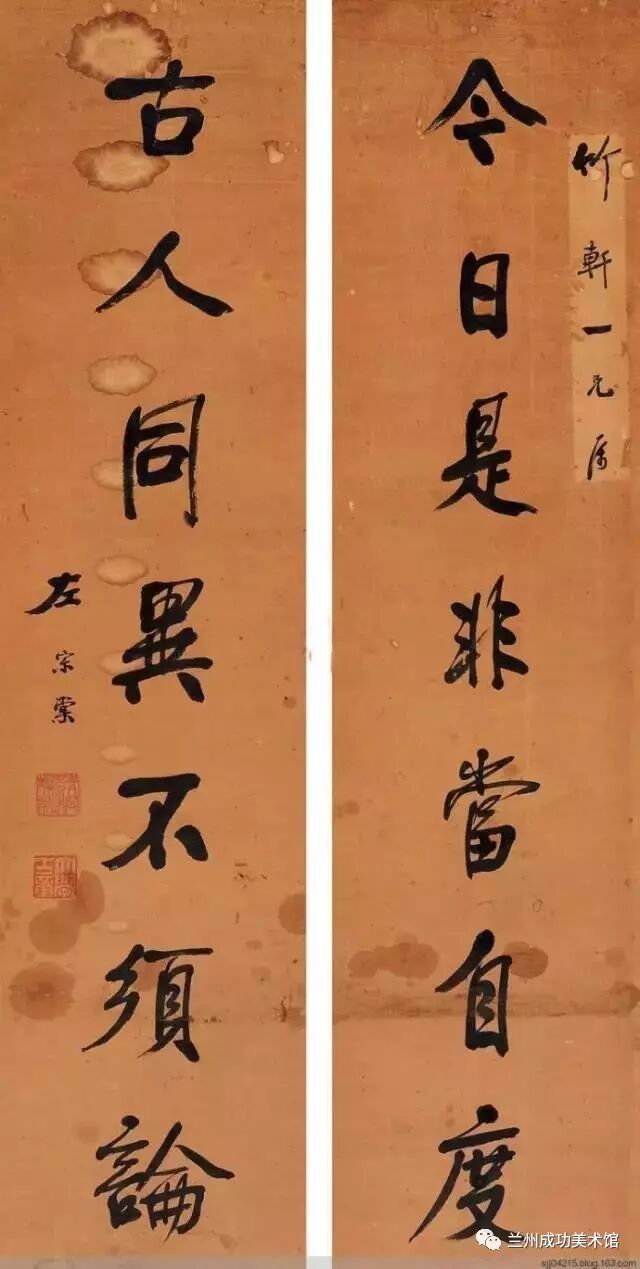 竹軒一兄屬
今日是非當自度
古人同異不須論
左宗棠
兰州成功美术馆
sjj04215.blog.163.com